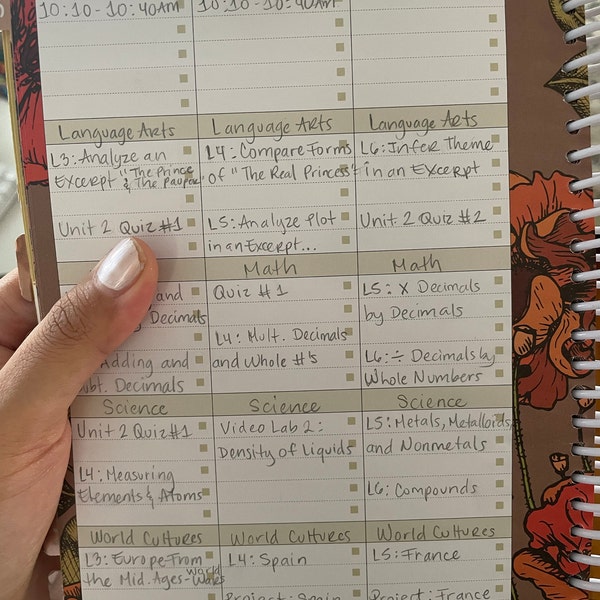 10:10-10:40AM
10:10-10:40AM
Language Arts
L3: Analyze an
Excerpt "The Prince
& The Pauper"
Unit 2 Quiz #1
Language Arts
L4: Compare Forms
of "The Real Princess"
L5: Analyze Plot
in an Excerpt...
Language Arts
L6: Infer Theme
in an Excerpt
Unit 2 Quiz #2
and
Decimals
Adding and
Decimals
Math
Quiz #1
L4: Mult. Decimals
and Whole #'s
Math
L5: X Decimals
by Decimals
L6: ÷ Decimals by
Whole Numbers
Science
Unit 2 Quiz #1
L4: Measuring
Elements & Atoms
Science
Video Lab 2:
Density of Liquids
Science
L5: Metals, Metalloids,
and Nonmetals
L6: Compounds
World Cultures
L3: Europe-From
the Mid. Ages-World
Wars
World Cultures
L4: Spain
Project: Spain
World Cultures
L5: France
Project: France